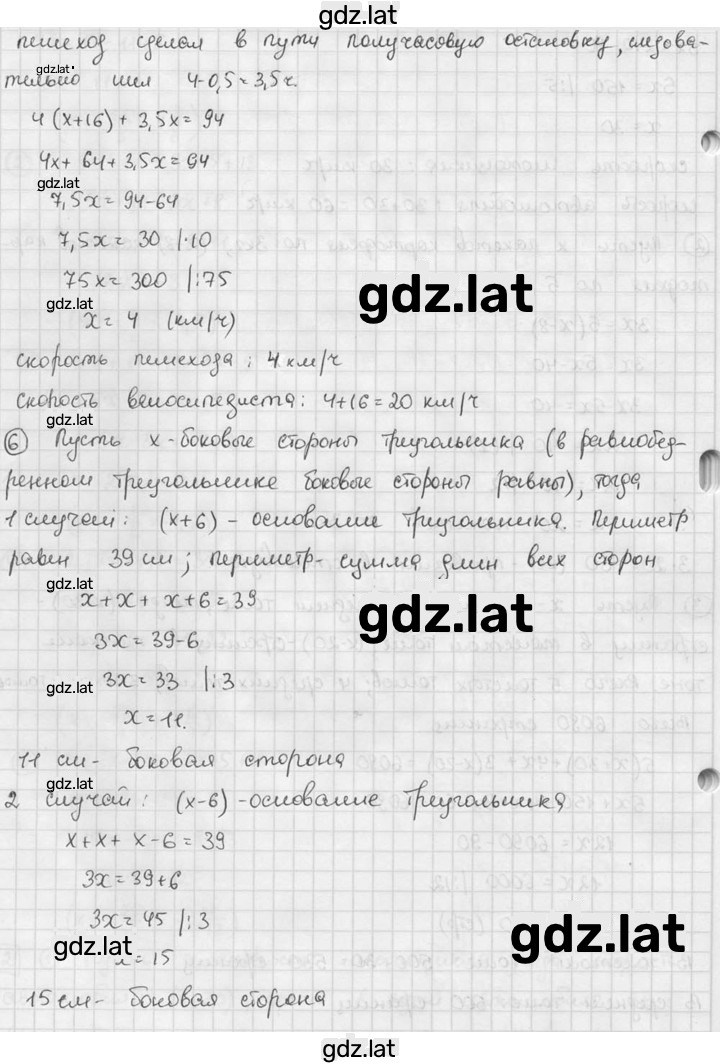 gdz.lat
пешеход сделал в пути получасовую остановку, следова-
gdz.lat
тельно шел 4-0,5=3,5ч.
4(x+16)+3,5x=94
4x+64+3,5x=94
gdz.lat
7,5x=94-64
7,5x=30 |·10
75x=300 |:75
gdz.lat
gdz.lat
x=4 (км/ч)
скорость пешехода: 4 км/ч
скорость велосипедиста: 4+16=20 км/ч
gdz.lat
6 Пусть x-боковые стороны треугольника (в равнобед-
ренном треугольнике боковые стороны равны), тогда
gdz.lat
1 случай: (x+6)-основание треугольника. Периметр
равен 39 см; периметр-сумма длин всех сторон
gdz.lat
x+x+x+6=39
gdz.lat
3x=39-6
3x=33 |:3
gdz.lat
x=11.
11 см- боковая сторона
gdz.lat
2 случай: (x-6)-основание треугольника
x+x+x-6=39
3x=39+6
3x=45 |:3
gdz.lat
gdz.lat
x=15
15 см- боковая сторона
gdz.lat